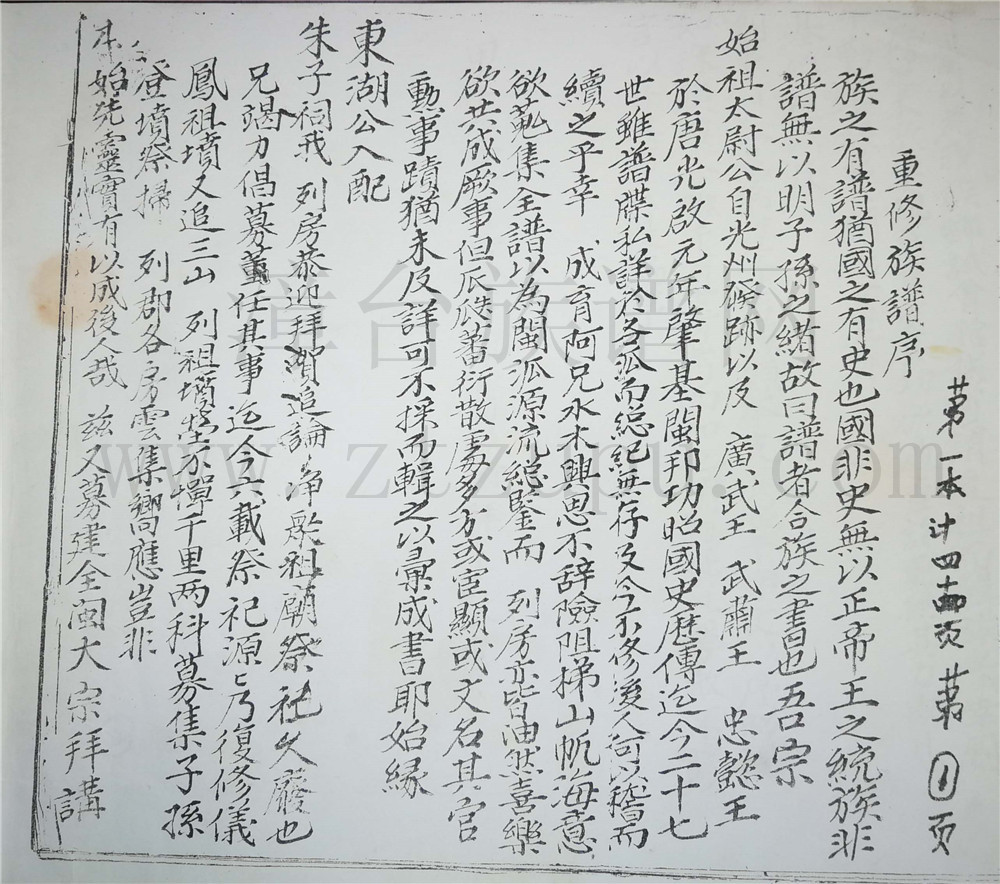 第一本 计四十四页 第①页
重修族譜序
族之有譜猶國之有史也國非史無以正帝王之統族非
譜無以明子孫之緒故曰譜者合族之書也吾宗
始祖太尉公自光州發跡以及 廣武王 武肅王 忠懿王
於唐光啟元年肇基閩邦功昭國史歷傳迄今二十七
世雖譜牒私詳於各派而總紀無存及今不修後人何以稽而
續之乎幸 成育阿兄水木興思不辭險阻梯山帆海意
欲蒐集全譜以為閩派源流總鑒而 列房亦皆油然喜樂
欲共成厥事但瓜瓞蕃衍散處多方或宦顯或文名其官
勳事蹟猶未及詳可不採而輯之以彙成書耶始緣
東湖公入配
朱子祠我 列房恭迎拜賀追論 祖廟祭祀久廢也
兄竭力倡募董任其事迄今六載祭祀源々乃復修儀
鳳祖墳又追三山 列祖墳塋不憚千里两科募集子孫
登墳祭掃 列郡各房雲集響應豈非
始先靈實有以成後人哉 兹又募建全閩大宗拜講
章台族谱网
www.ztzupu.com